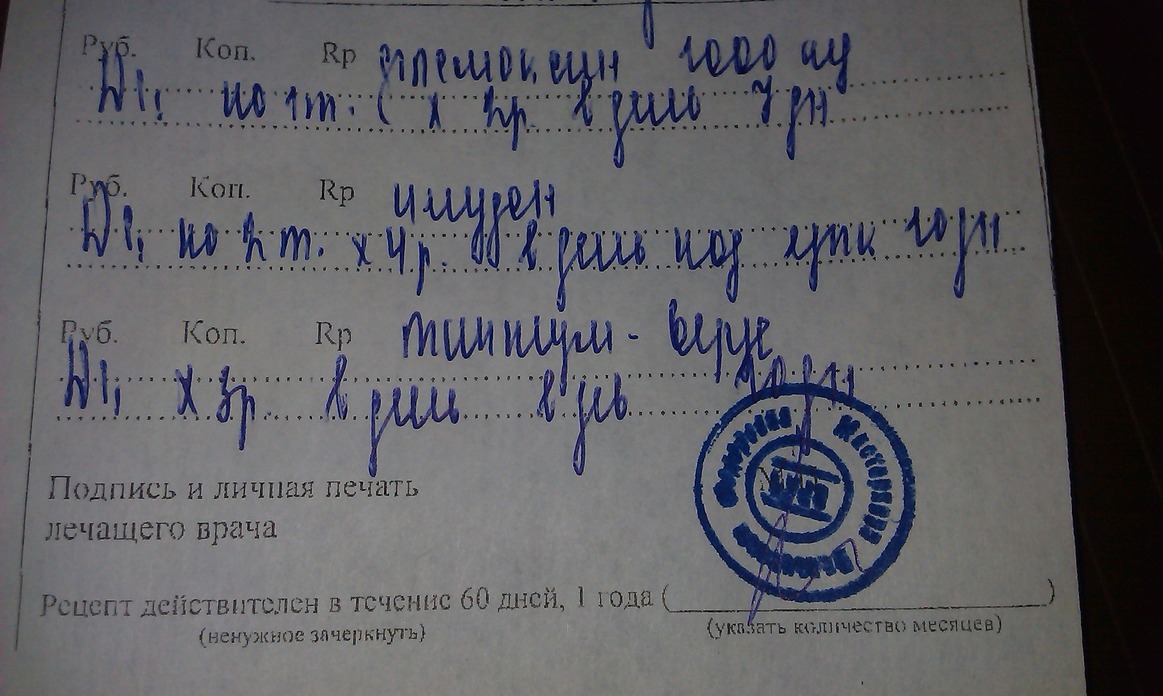 Руб. Коп. Rp флемоксин 1000 мг
по 1 т. х 2р. в день 7 дн
Руб. Коп. Rp имудон
по 2 т. х 4р. в день под 10 дн
Руб. Коп. Rp тантум - верде
х 3р. в день
Подпись и личная печать
лечащего врача
Рецепт действителен в течение 60 дней, 1 года (
(ненужное зачеркнуть) (указать количество месяцев)